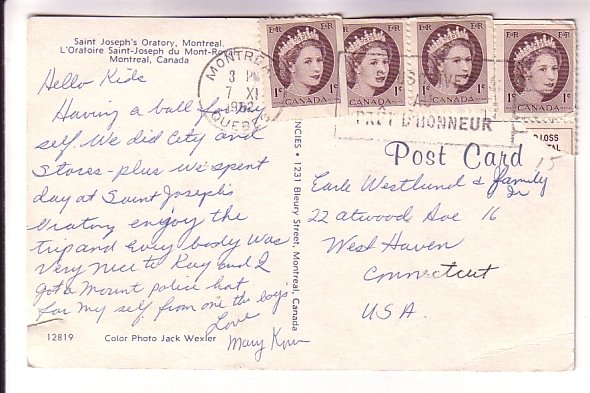 Saint Joseph's Oratory, Montreal.
L'Oratoire Saint-Joseph du Mont-Royal
Montreal, Canada
Hello Kids
Having a ball
self We did City and
Stores - plus we spent
day at Saint Josephs
Oratory enjoy the
trip and Every body was
Very nice to Kay and I
got a Mount police hat
for my self from one the boys
Love
Mary
12819 Color Photo Jack Wexler
NCIES • 1231 Bleury Street, Montreal, Canada
MONTREAL
3 PM
7 XI
1962
QUEBEC
PRÊT D'HONNEUR
E II R E II R
1¢ CANADA 1¢
E II R E II R
1¢ CANADA 1¢
E II R E II R
1¢ CANADA 1¢
E II R E II R
1¢ CANADA 1¢
Post Card
15
Earle Westlund & family
Jr
22 atwood Ave 16
West Haven
Connecticut
USA.